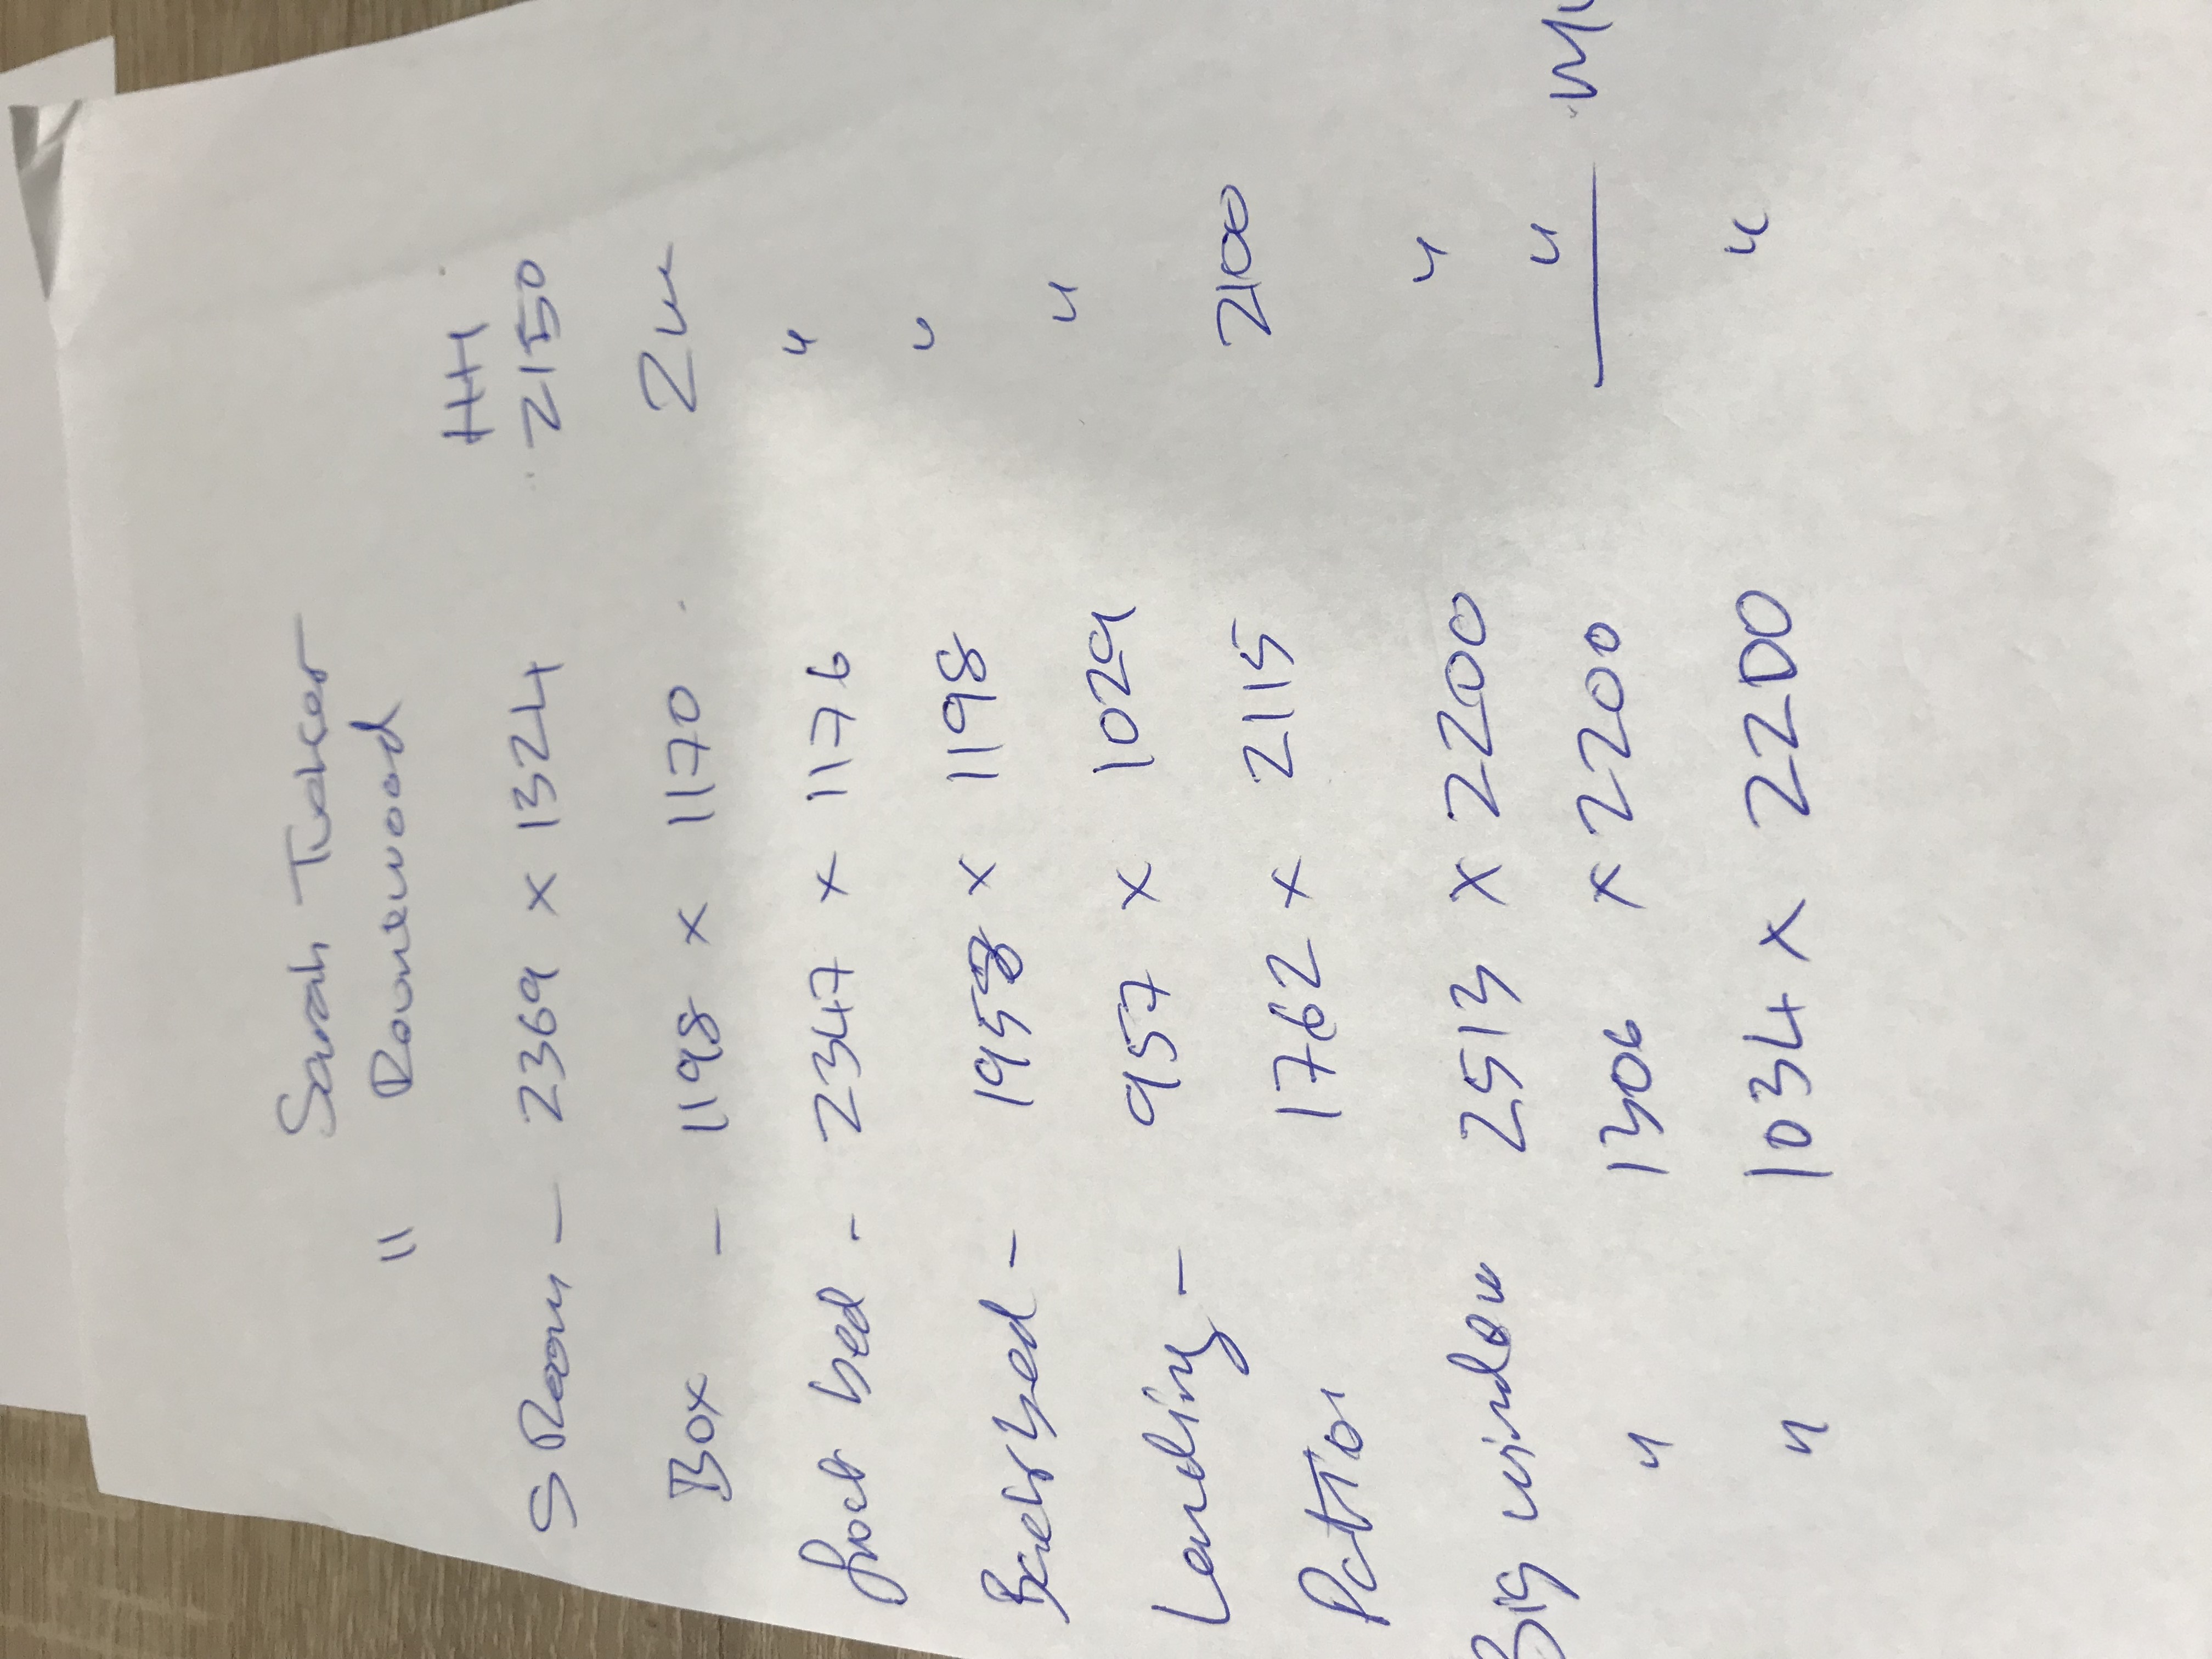 Sarah Tucker
" Ravenewood
HH
S Room - 2369 x 1324 2150
Box - 1198 x 1170 2m
front bed - 2347 x 1176 "
Back bed - 1958 x 1198 "
Landing - 957 x 1029 "
Pattion 1762 x 2115 2100
Big window 2513 x 2200 "
" 1306 x 2200 "
" 1034 x 2200 "